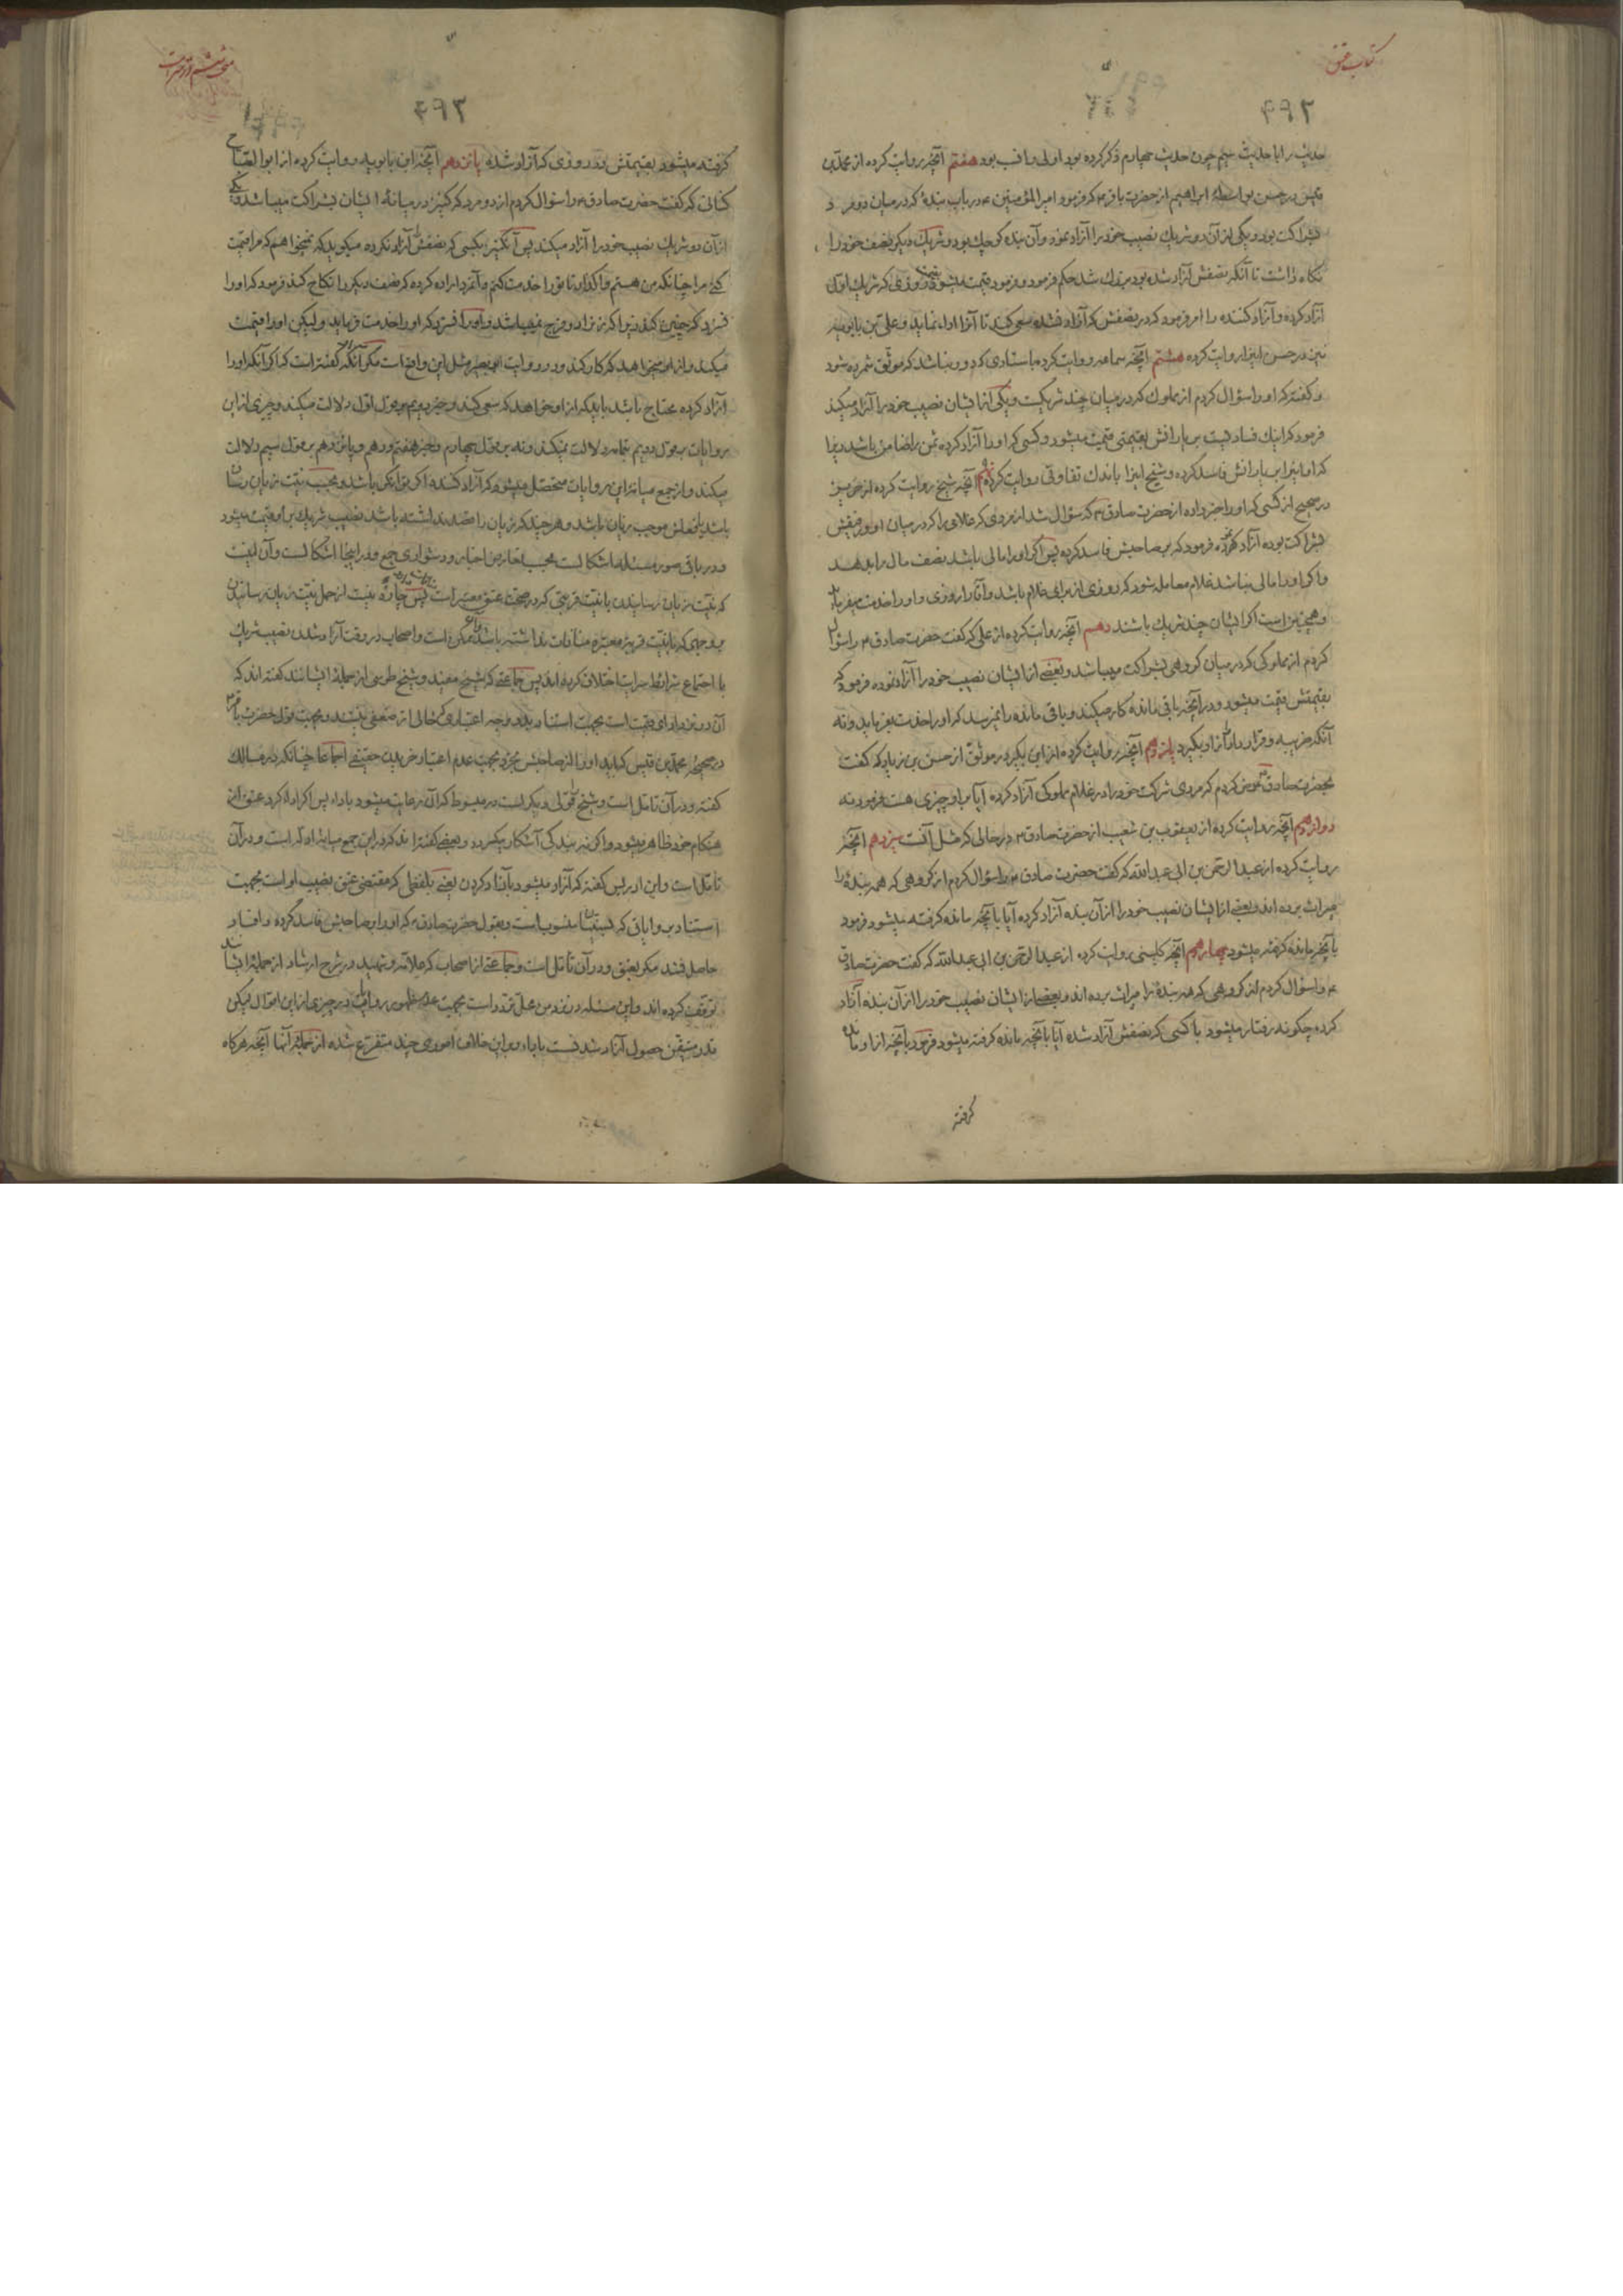 کتاب عتق
۴۹۲
حدیث را با حدیث پنجم چون حدیث چهارم ذکر کرده بود اولی و انسب بود هفتم آنچه روایت کرده از محمد بن
قیس در حسن بواسطهٔ ابراهیم از حضرت باقر ع که فرمود امیرالمؤمنین ع در باب بندهٔ که در میان دو مرد
بشراکت بود و یکی از آن دو شریک نصیب خود را آزاد نمود و آن بنده کوچک بود و شریک دیگر نصف خود را
نگاه داشت تا آنکه نصفش آزاد شده بود بزرگ شد حکم فرمود و فرمود قیمت میشود روزی که شریک اول
آزاد کرده و آزاد کننده را امر فرمود که در نصفش که آزاد نشده سعی کند تا آنرا اداء نماید و علی بن بابویه
نیز در حسن اینرا روایت کرده هشتم آنچه سماعه روایت کرده باسنادی که دور نباشد که موثق شمرده شود
و گفته که او را سؤال کردم از مملوک که در میان چند شریکست و یکی از ایشان نصیب خود را آزاد میکند
فرمود که اینک فسادیست بر یارانش بقیمتی قیمت میشود و کسی که او را آزاد کرده ثمن را ضامن باشد زیرا
که او اینرا بر یارانش فاسد کرده و شیخ اینرا باندک تفاوتی روایت کرده نهم آنچه شیخ روایت کرده از حریز
در صحیح از کسی که او را خبر داده از حضرت صادق ع که سؤال شد از مردی که غلامی را که در میان او و رفیقش
بشراکت بوده آزاد کرده فرمود که بر صاحبش فاسد کرده پس اگر او را مالی باشد نصف مال را بدهد
و اگر او را مالی نباشد غلام معامله شود که روزی از برای غلام باشد و آقا را روزی و او را خدمت میفرماید
و همچنین است اگر ایشان چند شریک باشند دهم آنچه روایت کرده از علی که گفت حضرت صادق ع را سؤال
کردم از مملوکی که در میان گروهی بشراکت میباشد و بعضی از ایشان نصیب خود را آزاد نموده فرمود که
بقیمتش قیمت میشود و در آنچه باقی مانده کار میکند و باقی مانده را نمیرسد که او را خدمت بفرماید و نه
آنکه ضریبه و قرار داد از او بگیرد یازدهم آنچه روایت کرده از ابن بکیر در موثق از حسن بن زیاد که گفت
بحضرت صادق ع عرض کردم که مردی شرکت خود را در غلام مملوکی آزاد کرده آیا بر او چیزی هست فرمود نه
دوازدهم آنچه روایت کرده از یعقوب بن شعیب از حضرت صادق ع در حالی که مثل آنست سیزدهم آنچه
روایت کرده از عبد الرحمن بن ابی عبدالله که گفت حضرت صادق ع را سؤال کردم از گروهی که همه بندهٔ را
میراث برده اند و بعضی از ایشان نصیب خود را از آن بنده آزاد کرده آیا بآنچه مانده گرفته میشود فرمود
بآنچه مانده گرفته میشود چهاردهم آنچه کلینی روایت کرده از عبد الرحمن بن ابی عبدالله که گفت حضرت صادق
ع را سؤال کردم از گروهی که همه بندهٔ را میراث برده اند و بعضی از ایشان نصیب خود را از آن بنده آزاد
کرده چگونه رفتار میشود با کسی که نصفش آزاد شده آیا بآنچه مانده گرفته میشود فرمود بآنچه از او مانده
گرفته
۴۹۳
گرفته میشود بقیمتش در روزی که آزاد شده پانزدهم آنچه ابن بابویه روایت کرده از ابوالصباح
کنانی که گفت حضرت صادق ع را سؤال کردم از دو مرد که کنیز در میانهٔ ایشان بشراکت میباشد و یکی
از آن دو شریک نصیب خود را آزاد میکند پس آن کنیز بکسی که نصفش را آزاد نکرده میگوید که نمیخواهم که مرا قیمت
کنی مرا چنانکه من هستم واگذار تا تو را خدمت کنم و آنمرد اراده کرده که نصف دیگر را نکاح کند فرمود که او را
نمیرسد که چنین کند زیرا که زن را دو فرج نمیباشد و او را نمیرسد که او را خدمت فرماید ولیکن او را قیمت
میکند و از او میخواهد که کار کند و در روایت ابوبصیر مثل این واقع است مگر آنکه گفته است که اگر آنکه او را
آزاد کرده محتاج باشد باید که از او خواهد که سعی کند و خبر دویم بر قول اول دلالت میکند و چیزی از این
روایات بر قول دویم بتمامه دلالت نمیکند و نه بر قول چهارم و خبر هفتم و دهم و پانزدهم بر قول سیم دلالت
میکند و از جمع میانهٔ این روایات متحصل میشود که آزاد کننده اگر توانگر باشد و بحسب نیت زیان رسان
باشد یا فعلش موجب زیان باشد و هر چند که زیان را قصد نداشته باشد نصیب شریک بر او قیمت میشود
و در باقی صور مسئله اشکالست بحسب تعارض اخبار و دشواری جمع و در اینجا اشکالست و آن اینست
که نیت زیان رسانیدن با نیت قربتی که در صحت عتق معتبر است پس چاره نیست از حمل نیت زیان رسانیدن
بوجهی که با نیت قربت معتبره منافات نداشته باشد ممکن است و اصحاب در وقت آزاد شدن نصیب شریک
با اجتماع شرایط سرایت اختلاف کرده اند پس جماعتی که شیخ مفید و شیخ طوسی از جملهٔ ایشانند گفته اند که
آن در نزد ادای قیمت است بجهت استناد بدو وجه اعتباری که خالی از ضعفی نیستند و بجهت قول حضرت باقر ع
در صحیحهٔ محمد بن قیس که باید او را از صاحبش بخرد بجهت عدم اعتبار خریدن حقیقی اجماعا چنانکه در مسالک
گفته و در آن تأمل است و شیخ را قولی دیگر است در مبسوط که آن رعایت میشود باداء پس اگر اداء کرد عتق از
هنگام خود ظاهر میشود و اگر نه بندگی آشکار میگردد و بعضی گفته اند که در این جمع میانهٔ ادله است و در آن
تأمل است و ابن ادریس گفته که آزاد میشود بآزاد کردن یعنی بلفظی که مقتضی عتق نصیب او است بجهت
استناد بروایاتی که نسبتش باو منسوب است و بقول حضرت صادق ع که او را بر صاحبش فاسد کرده و افساد
حاصل نشد مگر بعتق و در آن تأمل است و جماعتی از اصحاب که علامه و شهید در شرح ارشاد از جملهٔ ایشانند
توقف کرده اند و این مسئله در نزد من محل تردد است بجهت عدم ظهور روایات در چیزی از این اقوال لیکن
قدر متیقن حصول آزاد شدنست باداء و بر این خلاف اموری چند متفرع شده از جملهٔ آنها آنچه هر گاه